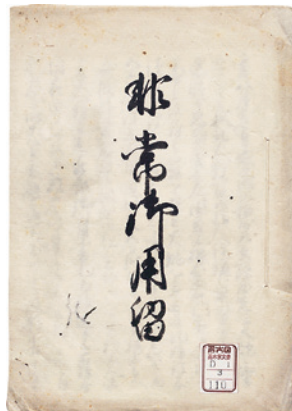 非常御用留
D 1
3
110